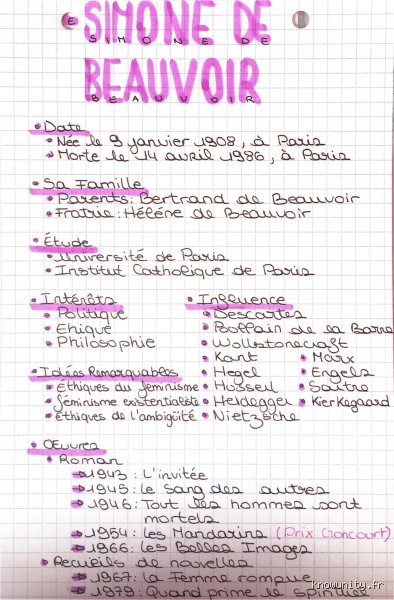 SIMONE DE
SIMONE DE
BEAUVOIR
BEAUVOIR
• Date
• Née le 9 janvier 1908, à Paris
• Morte le 14 avril 1986, à Paris
• Sa Famille
• Parents: Bertrand de Beauvoir
• Fratrie: Hélène de Beauvoir
• Étude
• Université de Paris
• Institut Catholique de Paris
• Intérêts
• Politique
• Ethique
• Philosophie
• Influence
• Descartes
• Poullain de la Barre
• Wollstonecraft
• Kant
• Hegel
• Husserl
• Heidegger
• Nietzsche
• Marx
• Engels
• Sartre
• Kierkegaard
• Idées Remarquables
• Éthiques du féminisme
• féminisme existentialiste
• éthiques de l'ambigüité
• Œuvres
• Roman
→ 1943: L'invitée
→ 1945: le sang des autres
→ 1946: Tout les hommes sont
mortels
→ 1954: les Mandarins (Prix Goncourt)
→ 1966: les Belles Images
• Recueils de nouvelles
→ 1967: la Femme rompue
→ 1979: Quand prime le spirituel
knowunity.fr